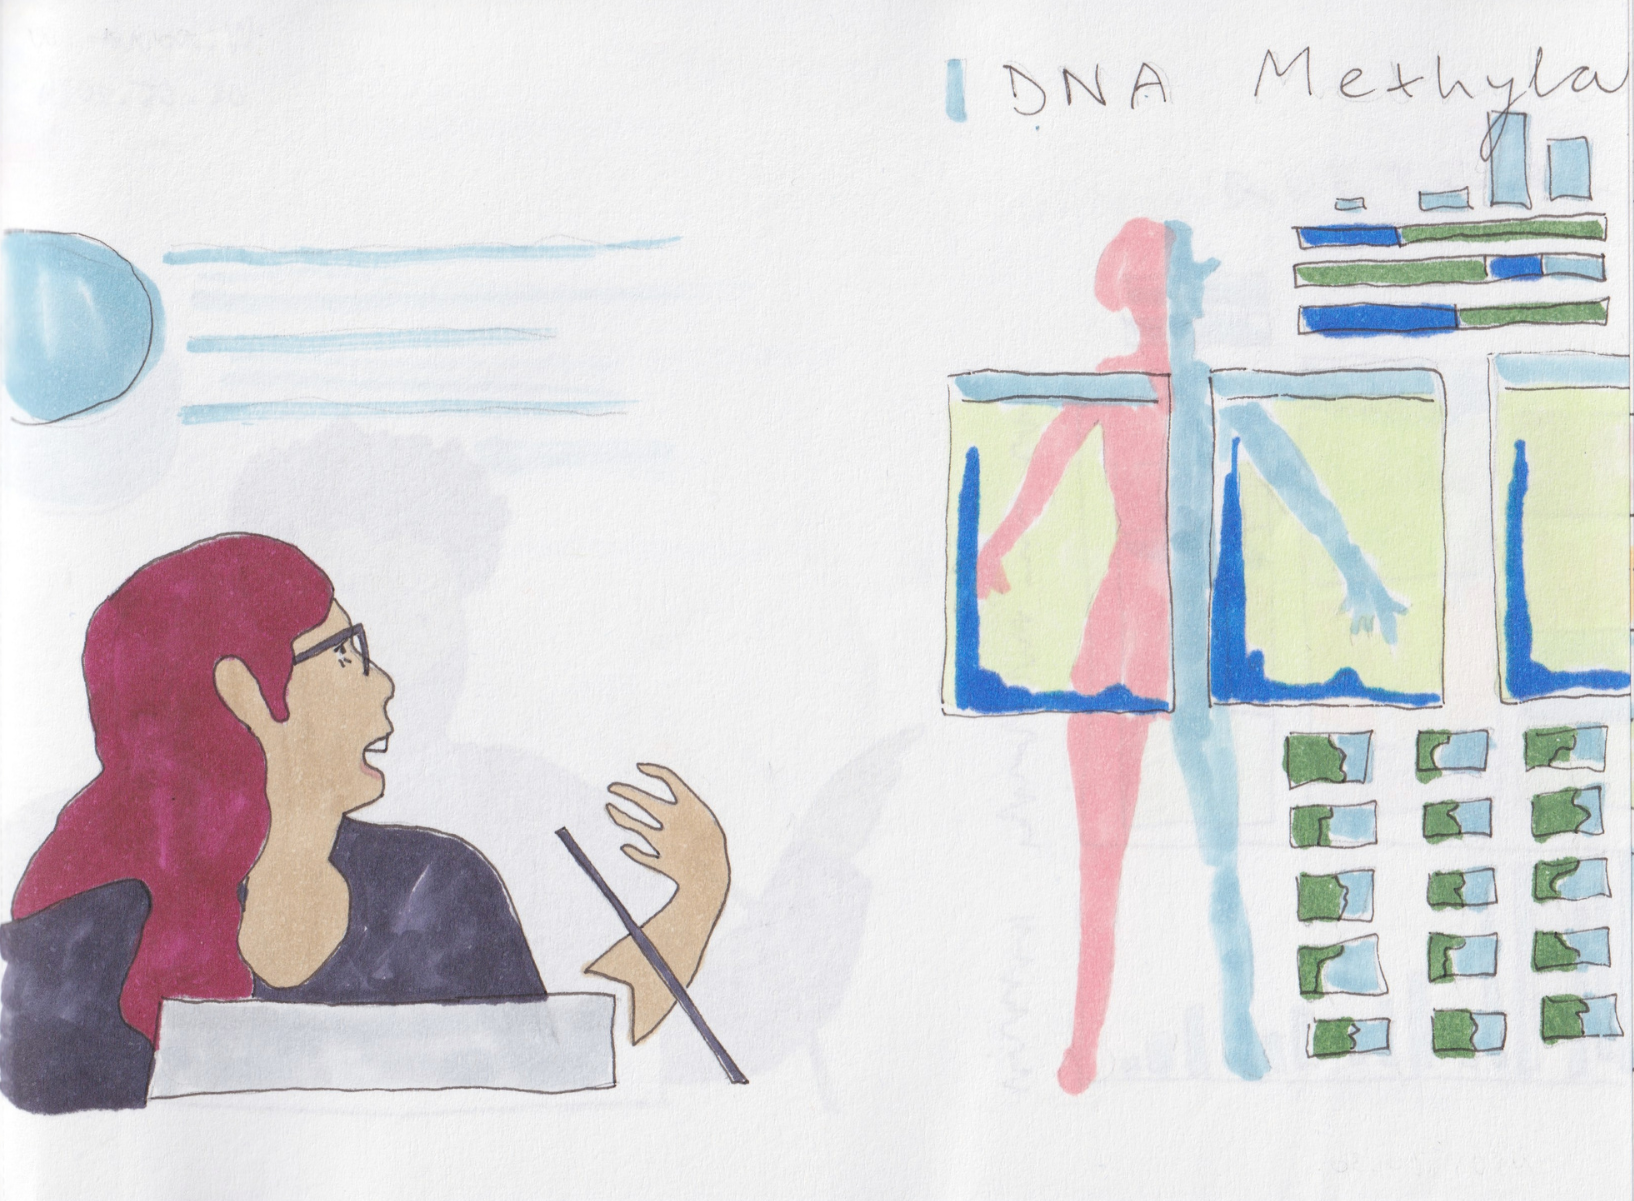 DNA Methyla